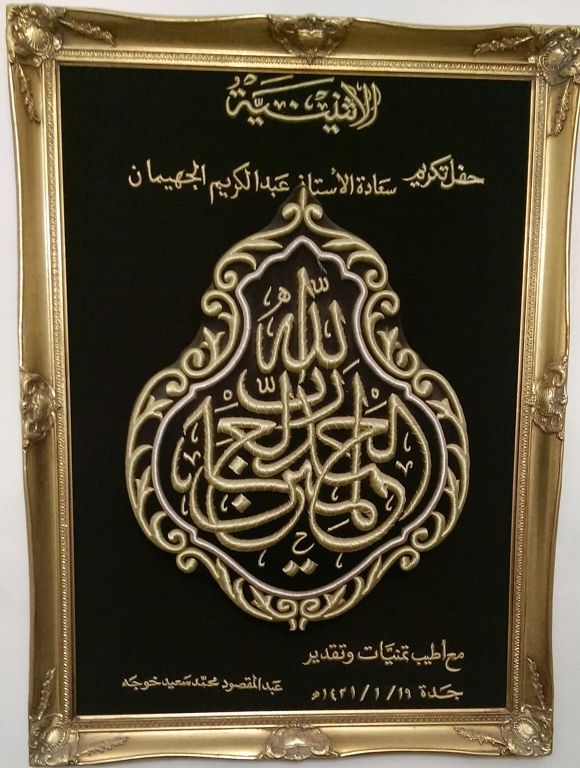 الاثنينية
حفل تكريم سعادة الأستاذ عبد الكريم الجهيمان
الحمد لله رب العالمين
مع أطيب تمنيات وتقدير
عبد المقصود محمد سعيد خوجه
جدة ١٤٢١/١/١٩هـ